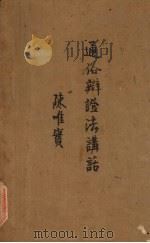 通俗辯證法講話
陳唯實